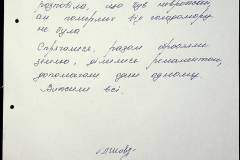 розповіла, що був невротоєм,
ані померлих від голодомору
не було
Спрягалися, разом обробляли
землю, ділилися реманентом,
допомагали один одному.
Вижили всі.